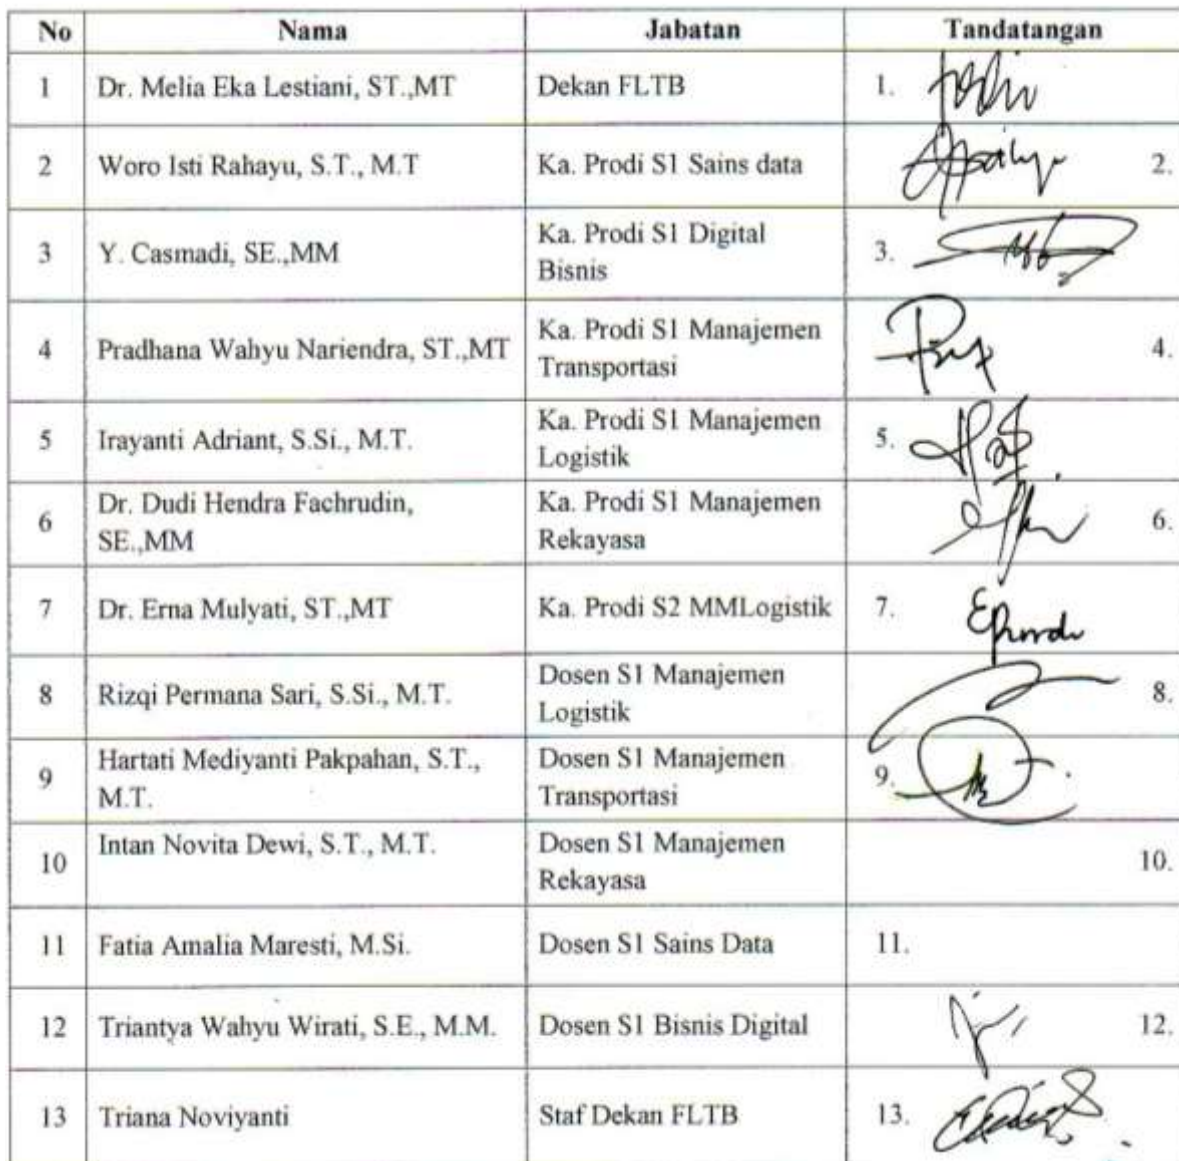 No Nama Jabatan Tandatangan
1 Dr. Melia Eka Lestiani, ST.,MT Dekan FLTB 1.
2 Woro Isti Rahayu, S.T., M.T Ka. Prodi S1 Sains data 2.
3 Y. Casmadi, SE.,MM Ka. Prodi S1 Digital
Bisnis 3.
4 Pradhana Wahyu Nariendra, ST.,MT Ka. Prodi S1 Manajemen
Transportasi 4.
5 Irayanti Adriant, S.Si., M.T. Ka. Prodi S1 Manajemen
Logistik 5.
6 Dr. Dudi Hendra Fachrudin,
SE.,MM Ka. Prodi S1 Manajemen
Rekayasa 6.
7 Dr. Erna Mulyati, ST.,MT Ka. Prodi S2 MMLogistik 7.
8 Rizqi Permana Sari, S.Si., M.T. Dosen S1 Manajemen
Logistik 8.
9 Hartati Mediyanti Pakpahan, S.T.,
M.T. Dosen S1 Manajemen
Transportasi 9.
10 Intan Novita Dewi, S.T., M.T. Dosen S1 Manajemen
Rekayasa 10.
11 Fatia Amalia Maresti, M.Si. Dosen S1 Sains Data 11.
12 Triantya Wahyu Wirati, S.E., M.M. Dosen S1 Bisnis Digital 12.
13 Triana Noviyanti Staf Dekan FLTB 13.